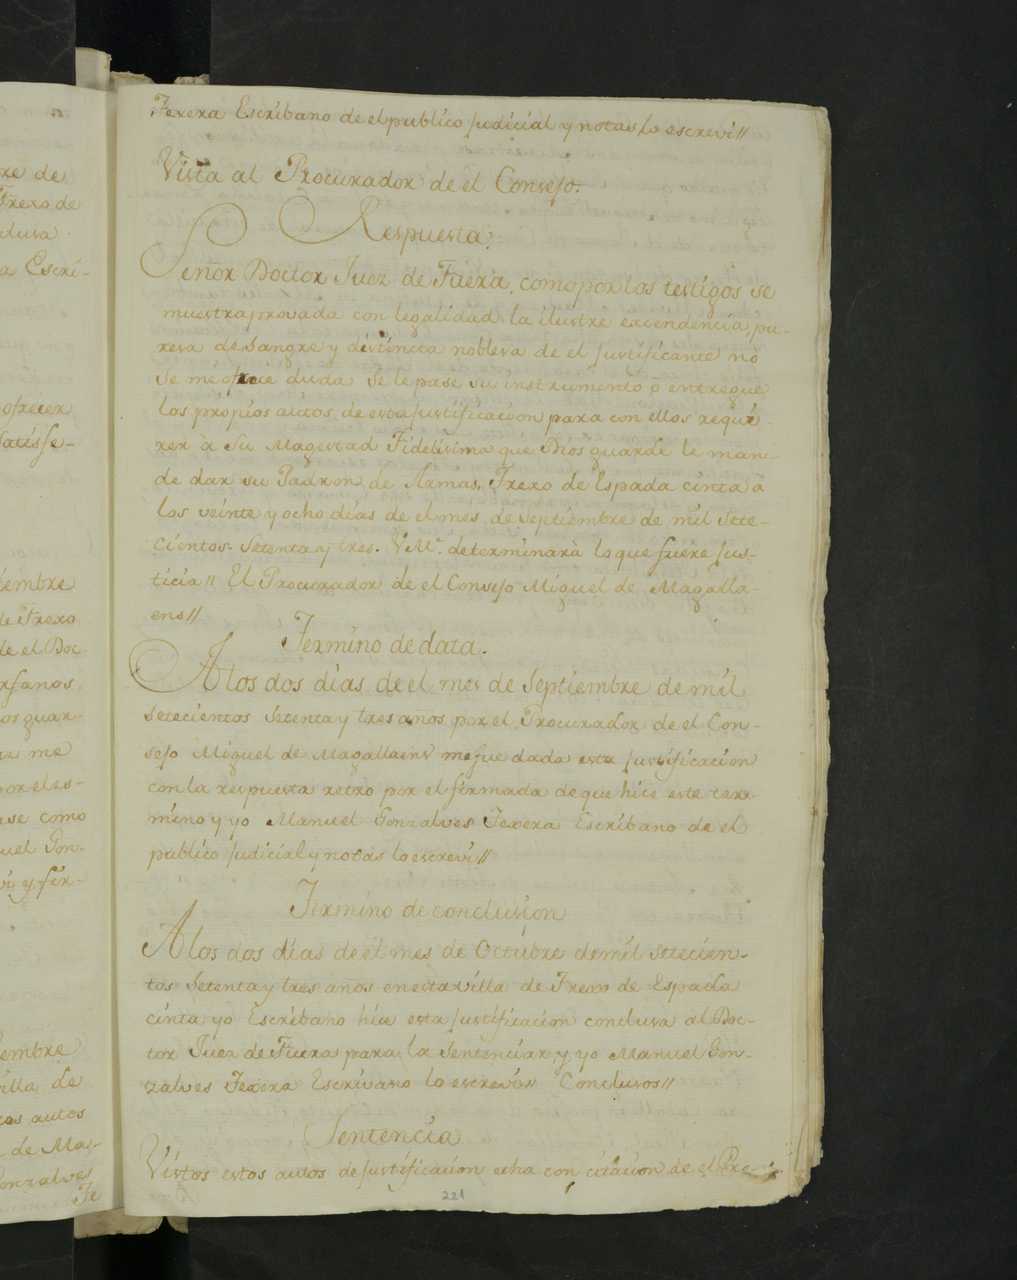 re de
Frexo de
clusa
a Escri-
ofrecer
Satisfe-
iembre
de Frexo
de el Doc
rfanos
os guar-
me
por el es-
ase como
uel Gon-
vi y fir-
iembre
villa de
tos autos
de Ma-
Gonzalves
Te
Texera Escribano de el publico judicial y notas lo escrevi //
Vista al Procurador de el Consejo.
Respuesta.
Señor Doctor Juez de Fuera, como por los testigos se
muestra provada con legalidad la ilustre excendencia pu-
resa de Sangre y distincta noblesa de el justificante no
Se me ofrece duda Se le pase su instrumento ò entregue
los própios autos de esta justificacion para con ellos reque-
rer à Su Magestad Fidelisima que Dios guarde le man-
de dar su Padron de Armas, Frexo de Espada cinta a
los veinte y ocho dias de el mes de Septiembre de mil Sete-
cientos Setenta y tres. V M. determinarà lo que fuere jus-
ticia // El Procurador de el Consejo Miguel de Magalla-
ens //
Termino de data.
A los dos dias de el mes de Septiembre de mil
Setecientos Setenta y tres años por el Procurador de el Con-
sejo Miguel de Magallaens me fue dada esta justificacion
con la respuesta retro por el firmada de que hice este ter-
mino y yo Manuel Gonzalves Texera Escribano de el
publico judicial y notas lo escrevi //
Termino de conclusion
A los dos dias de el mes de Octubre de mil Setecien-
tos Setenta y tres años en esta villa de Frexo de Espada
cinta yo Escribano hice esta justificacion conclusa al Doc-
tor Juez de Fuera para la Sentenciar y yo Manuel Gon-
zalves Texera Escrivano lo escrevi // Conclusos //
Sentencia
Vistos estos autos de justificacion echa con citacion de el Pro-
221